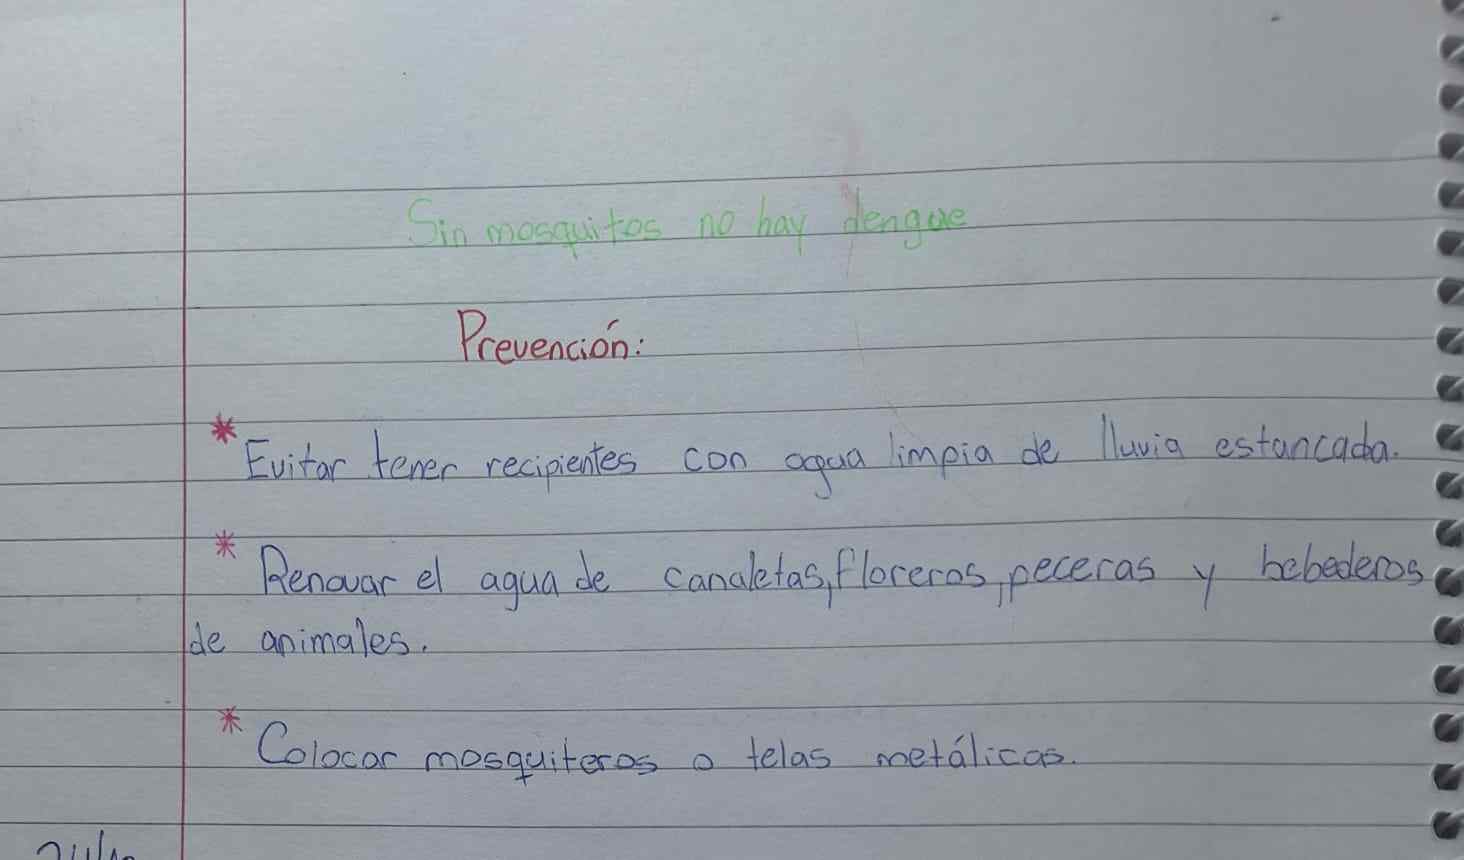 Sin mosquitos no hay dengue
Prevención:
* Evitar tener recipientes con agua limpia de lluvia estancada.
* Renovar el agua de canaletas, floreros, peceras y bebederos
de animales.
* Colocar mosquiteros o telas metálicas.